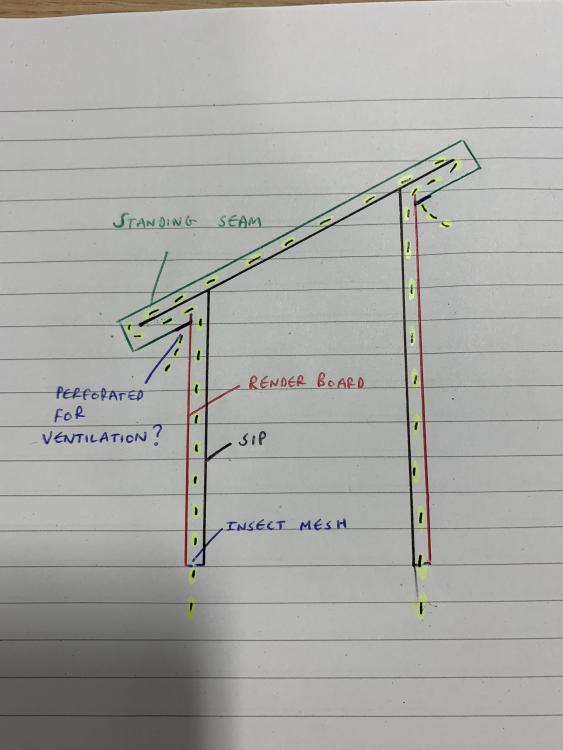 STANDING SEAM
PERFORATED
FOR
VENTILATION?
RENDER BOARD
SIP
INSECT MESH